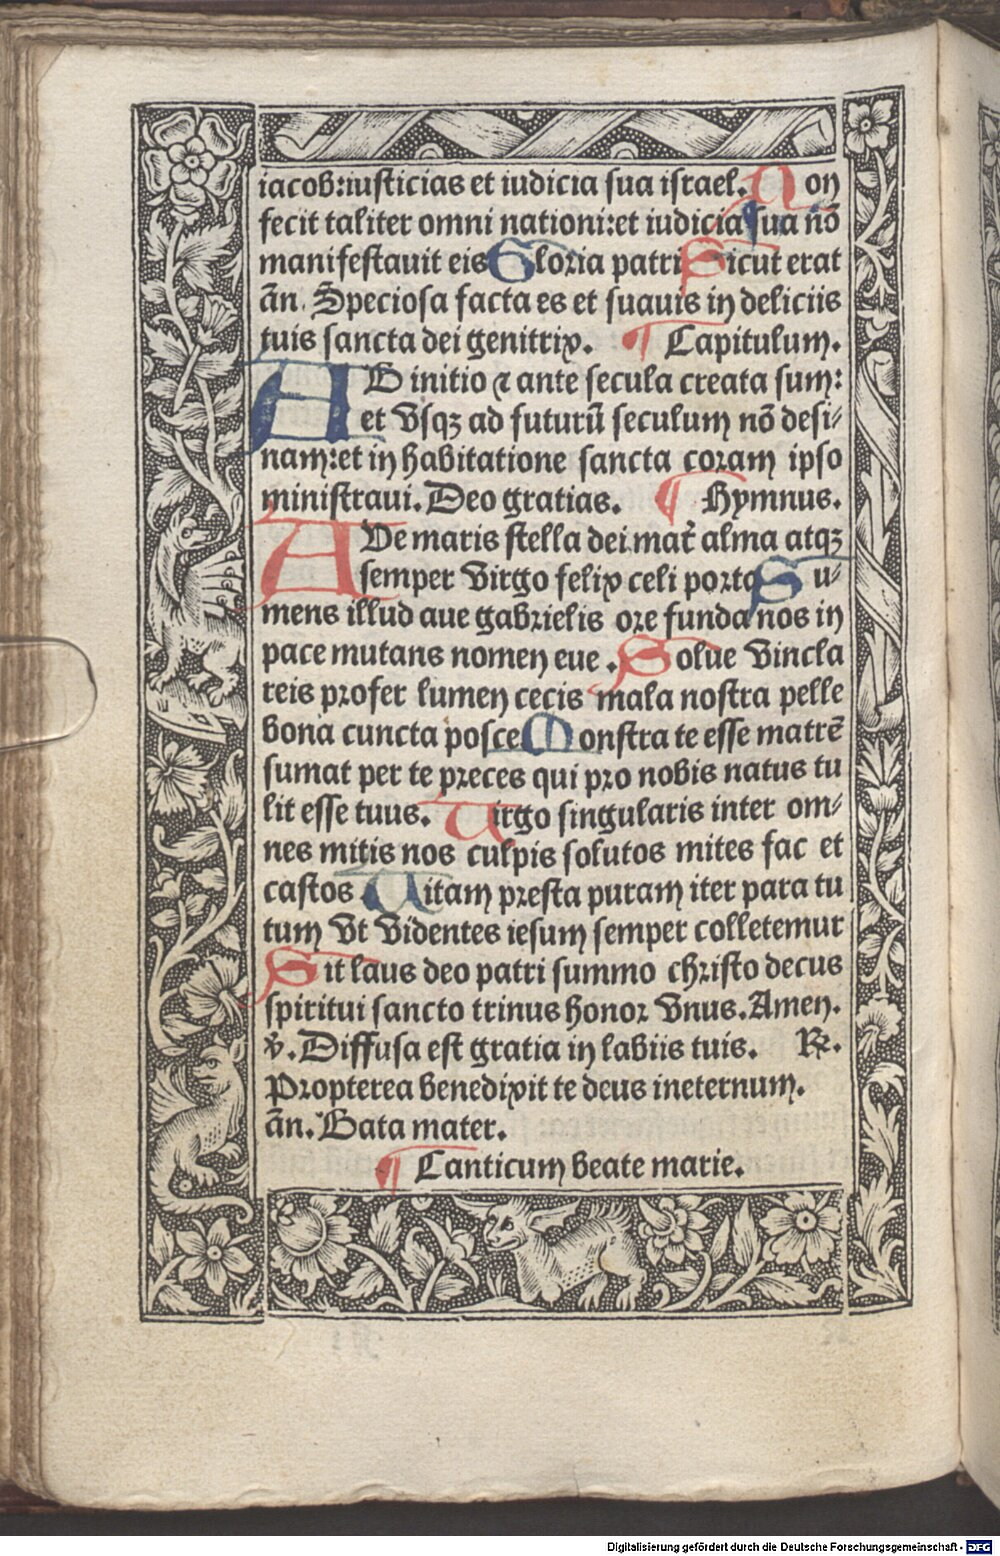 iacob:iusticias et iudicia sua israel. Non
fecit taliter omni nationi:et iudicia sua nō
manifestauit eis Gloria patri Sicut erat
añ. Speciosa facta es et suauis in deliciis
tuis sancta dei genitrix. ¶ Capitulum.
AB initio ⁊ ante secula creata sum:
et vsqꝫ ad futurū seculum nō desi-
nam:et in habitatione sancta coram ipso
ministraui. Deo gratias. ¶ Hymnus.
AVe maris stella dei mat̄ alma atqꝫ
semper virgo felix celi porta Su-
mens illud aue gabrielis ore funda nos in
pace mutans nomen eue. Solue vincla
reis profer lumen cecis mala nostra pelle
bona cuncta posce Monstra te esse matrē
sumat per te preces qui pro nobis natus tu
lit esse tuus. Virgo singularis inter om-
nes mitis nos culpis solutos mites fac et
castos Vitam presta puram iter para tu
tum vt videntes iesum semper colletemur
Sit laus deo patri summo christo decus
spiritui sancto trinus honor vnus. Amen.
℣. Diffusa est gratia in labiis tuis. ℟.
Propterea benedixit te deus ineternum.
añ. Bata mater.
¶ Canticum beate marie.
Digitalisierung gefördert durch die Deutsche Forschungsgemeinschaft - DFG